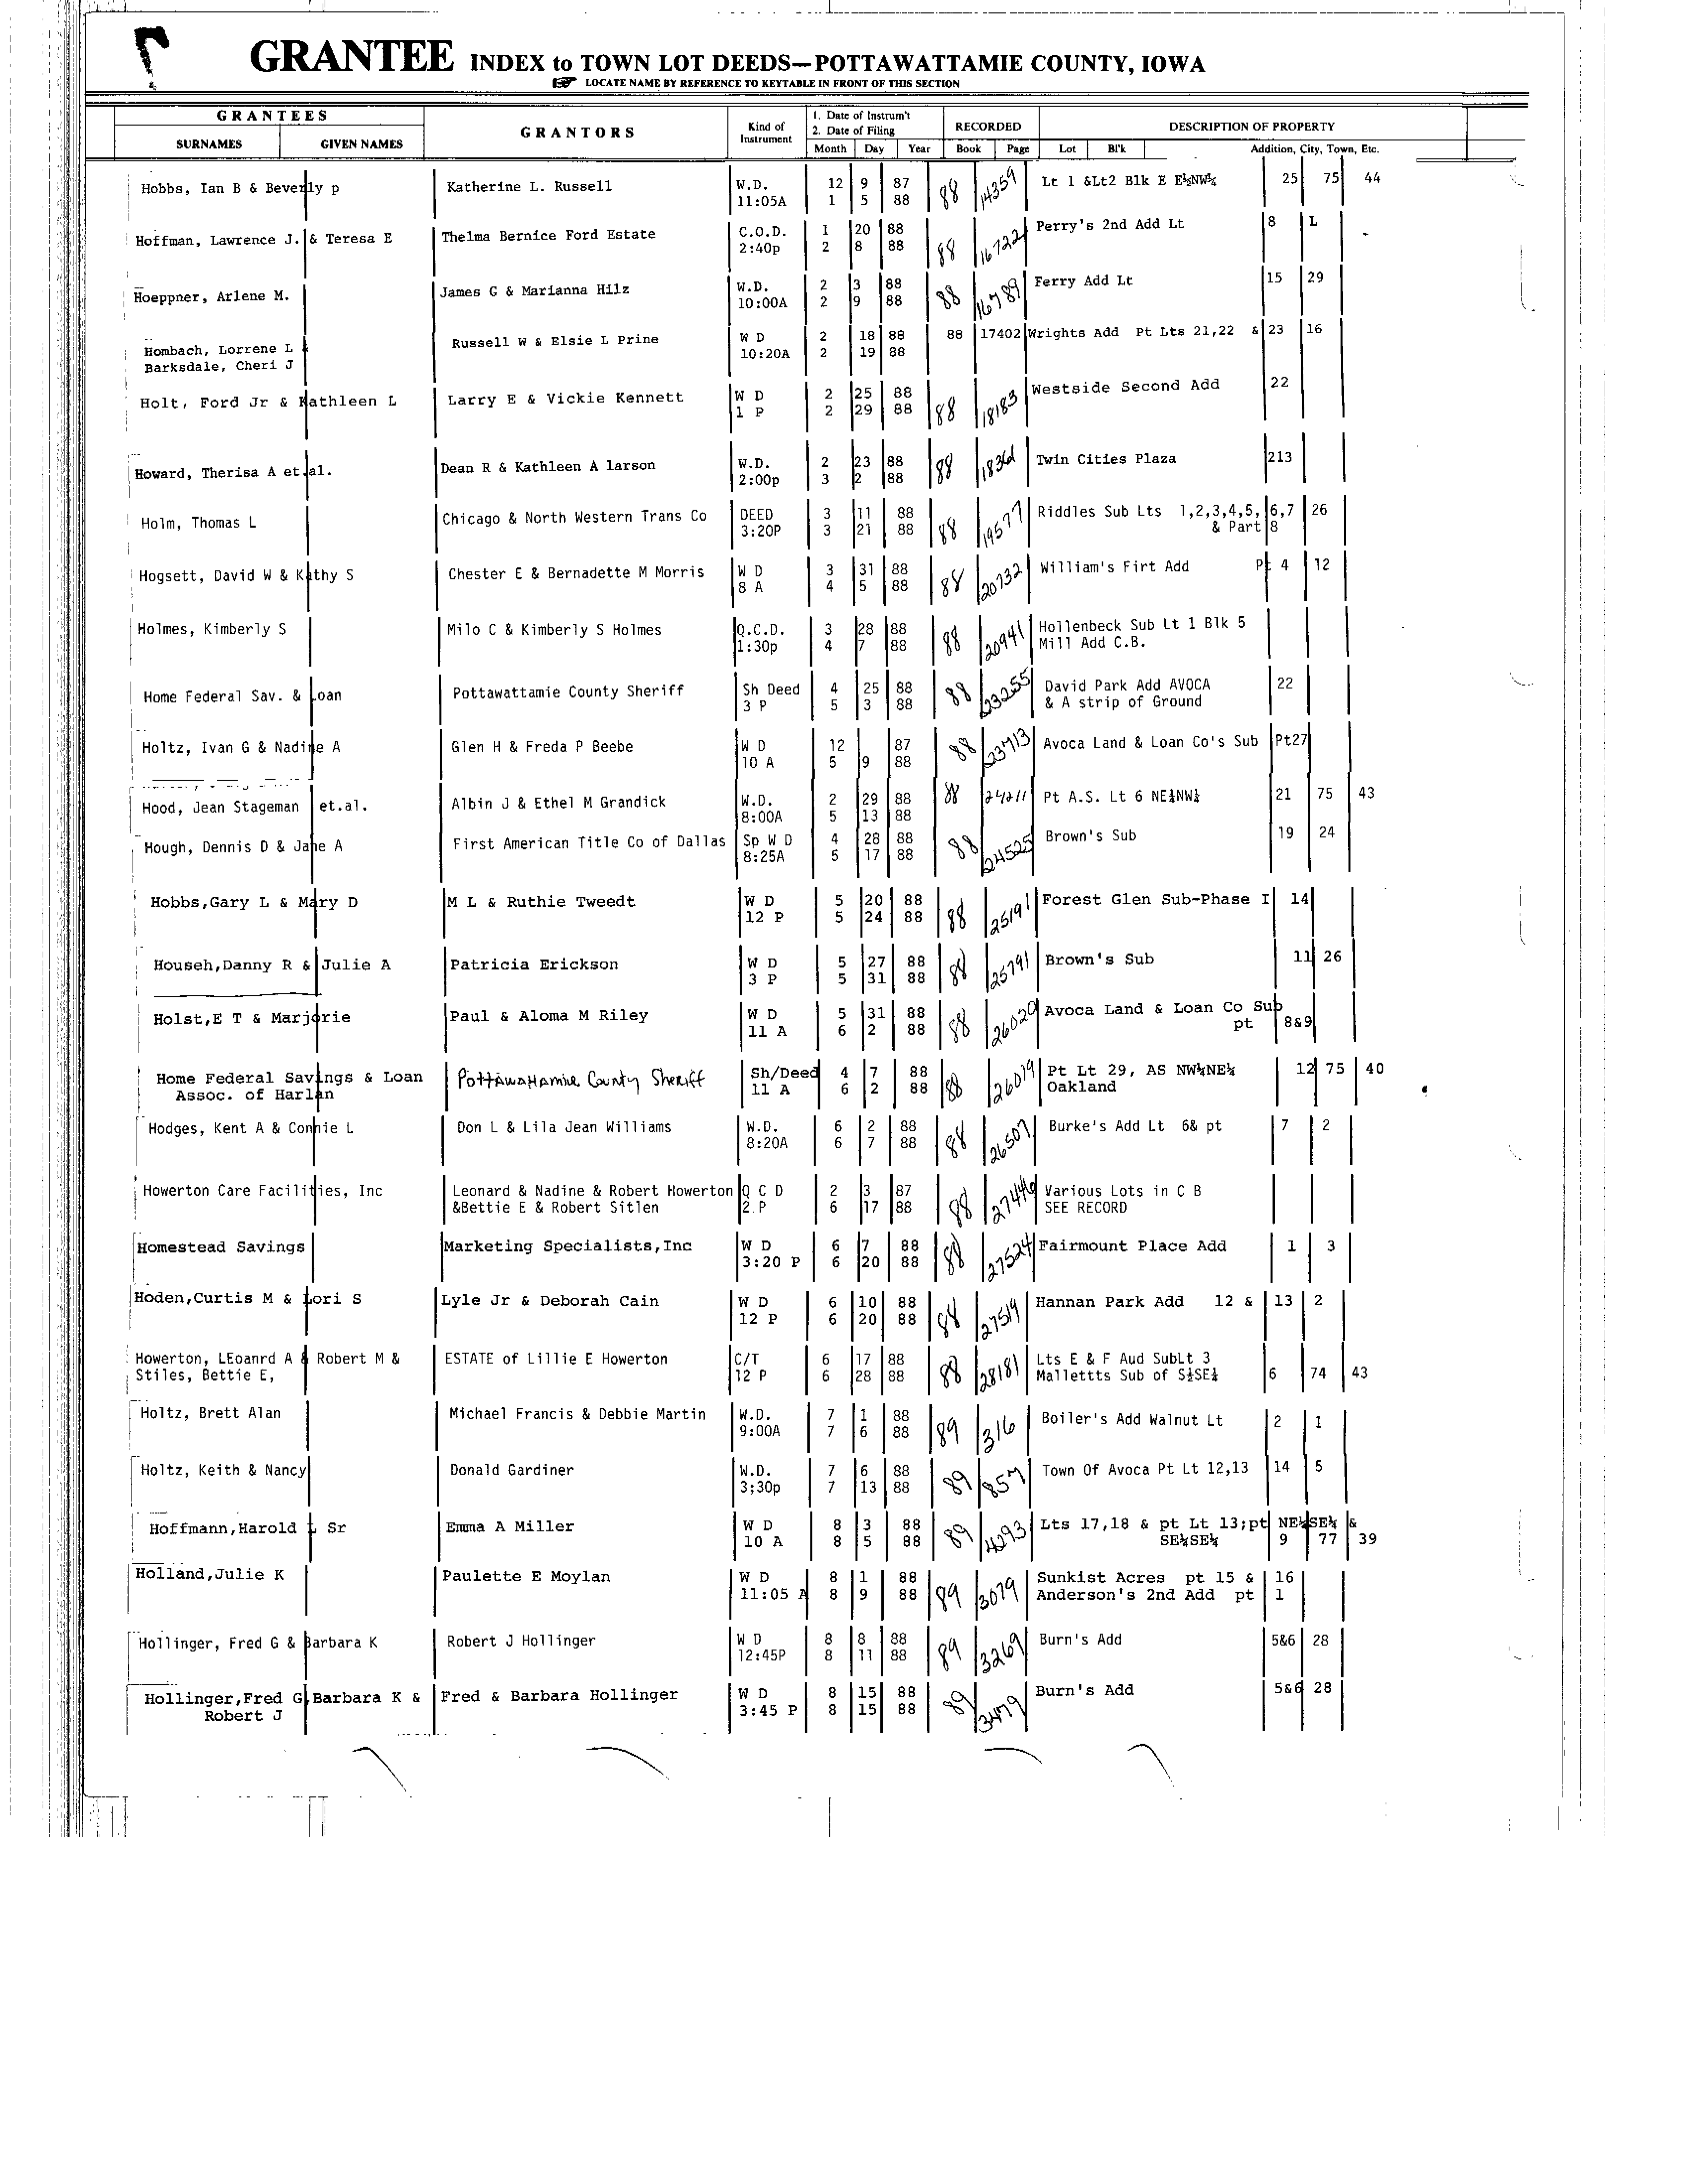 GRANTEE INDEX to TOWN LOT DEEDS—POTTAWATTAMIE COUNTY, IOWA
LOCATE NAME BY REFERENCE TO KEYTABLE IN FRONT OF THIS SECTION
GRANTEES
SURNAMES GIVEN NAMES
GRANTORS
Kind of Instrument
1. Date of Instrum't
2. Date of Filing
Month Day Year
RECORDED
Book Page
DESCRIPTION OF PROPERTY
Lot Bl'k Addition, City, Town, Etc.
Hobbs, Ian B & Beverly p Katherine L. Russell W.D. 12 9 87 88 14359 Lt 1 &Lt2 Blk E E½NW¼ 25 75 44
11:05A 1 5 88
Hoffman, Lawrence J. & Teresa E Thelma Bernice Ford Estate C.O.D. 1 20 88 88 16722 Perry's 2nd Add Lt 8 L
2:40p 2 8 88
Hoeppner, Arlene M. James G & Marianna Hilz W.D. 2 3 88 88 16789 Ferry Add Lt 15 29
10:00A 2 9 88
Hombach, Lorrene L & Russell W & Elsie L Prine W D 2 18 88 88 17402 Wrights Add Pt Lts 21,22 & 23 16
Barksdale, Cheri J 10:20A 2 19 88
Holt, Ford Jr & Kathleen L Larry E & Vickie Kennett W D 2 25 88 88 18183 Westside Second Add 22
1 P 2 29 88
Howard, Therisa A et.al. Dean R & Kathleen A larson W.D. 2 23 88 88 Twin Cities Plaza 213
2:00p 3 2 88
Holm, Thomas L Chicago & North Western Trans Co DEED 3 11 88 88 19577 Riddles Sub Lts 1,2,3,4,5, 6,7 26
3:20P 3 21 88 & Part 8
Hogsett, David W & Kathy S Chester E & Bernadette M Morris W D 3 31 88 88 20732 William's Firt Add Pt 4 12
8 A 4 5 88
Holmes, Kimberly S Milo C & Kimberly S Holmes Q.C.D. 3 28 88 88 20941 Hollenbeck Sub Lt 1 Blk 5
1:30p 4 7 88 Mill Add C.B.
Home Federal Sav. & Loan Pottawattamie County Sheriff Sh Deed 4 25 88 88 23255 David Park Add AVOCA 22
3 P 5 3 88 & A strip of Ground
Holtz, Ivan G & Nadine A Glen H & Freda P Beebe W D 12 87 88 23713 Avoca Land & Loan Co's Sub Pt27
10 A 5 9 88
Hood, Jean Stageman et.al. Albin J & Ethel M Grandick W.D. 2 29 88 88 24211 Pt A.S. Lt 6 NE¼NW¼ 21 75 43
8:00A 5 13 88
Hough, Dennis D & Jane A First American Title Co of Dallas Sp W D 4 28 88 88 24525 Brown's Sub 19 24
8:25A 5 17 88
Hobbs,Gary L & Mary D M L & Ruthie Tweedt W D 5 20 88 88 25191 Forest Glen Sub-Phase I 14
12 P 5 24 88
Househ,Danny R & Julie A Patricia Erickson W D 5 27 88 88 25791 Brown's Sub 11 26
3 P 5 31 88
Holst,E T & Marjorie Paul & Aloma M Riley W D 5 31 88 88 26020 Avoca Land & Loan Co Sub
11 A 6 2 88 pt 8&9
Home Federal Savings & Loan Pottawattamie County Sheriff Sh/Deed 4 7 88 88 26019 Pt Lt 29, AS NW¼NE¼ 12 75 40
Assoc. of Harlan 11 A 6 2 88 Oakland
Hodges, Kent A & Connie L Don L & Lila Jean Williams W.D. 6 2 88 88 26507 Burke's Add Lt 6& pt 7 2
8:20A 6 7 88
Howerton Care Facilities, Inc Leonard & Nadine & Robert Howerton Q C D 2 3 87 88 27446 Various Lots in C B
&Bettie E & Robert Sitlen 2 P 6 17 88 SEE RECORD
Homestead Savings Marketing Specialists,Inc W D 6 7 88 88 27524 Fairmount Place Add 1 3
3:20 P 6 20 88
Hoden,Curtis M & Lori S Lyle Jr & Deborah Cain W D 6 10 88 88 27519 Hannan Park Add 12 & 13 2
12 P 6 20 88
Howerton, LEoanrd A & Robert M & ESTATE of Lillie E Howerton C/T 6 17 88 88 28181 Lts E & F Aud SubLt 3
Stiles, Bettie E, 12 P 6 28 88 Mallettts Sub of S½SE¼ 6 74 43
Holtz, Brett Alan Michael Francis & Debbie Martin W.D. 7 1 88 89 316 Boiler's Add Walnut Lt 2 1
9:00A 7 6 88
Holtz, Keith & Nancy Donald Gardiner W.D. 7 6 88 89 857 Town Of Avoca Pt Lt 12,13 14 5
3;30p 7 13 88
Hoffmann,Harold L Sr Emma A Miller W D 8 3 88 89 4293 Lts 17,18 & pt Lt 13;pt NE¼SE¼ &
10 A 8 5 88 SE¼SE¼ 9 77 39
Holland,Julie K Paulette E Moylan W D 8 1 88 89 3079 Sunkist Acres pt 15 & 16
11:05 A 8 9 88 Anderson's 2nd Add pt 1
Hollinger, Fred G & Barbara K Robert J Hollinger W D 8 8 88 89 3269 Burn's Add 5&6 28
12:45P 8 11 88
Hollinger,Fred G Barbara K & Fred & Barbara Hollinger W D 8 15 88 89 3479 Burn's Add 5&6 28
Robert J 3:45 P 8 15 88